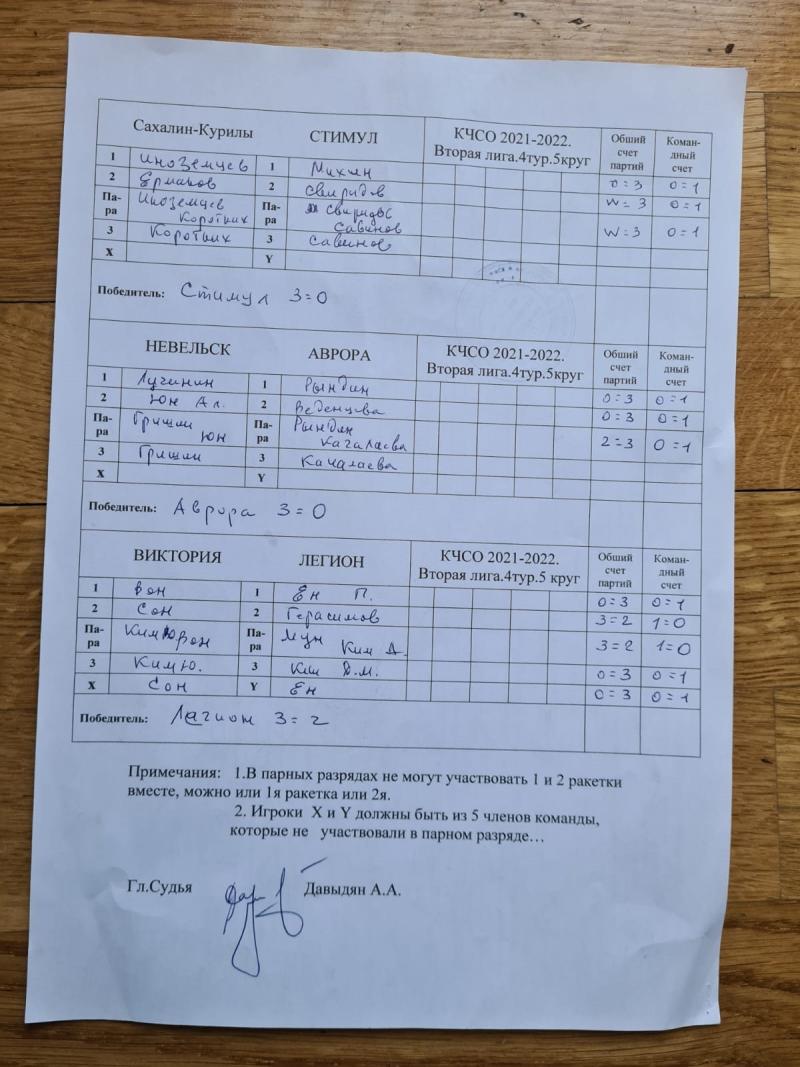 Сахалин-Курилы СТИМУЛ КЧСО 2021-2022. Вторая лига.4тур.5круг Общий счет партий Коман-дный счет
1 Иноземцев 1 Михин 0=3 0=1
2 Ермаков 2 Свиридов W=3 0=1
Па-ра Иноземцев Коротких Па-ра Свиридов Савинов W=3 0=1
3 Коротких 3 Савинов
X Y
Победитель: Стимул 3=0
НЕВЕЛЬСК АВРОРА КЧСО 2021-2022. Вторая лига.4тур.5круг Общий счет партий Коман-дный счет
1 Лучинин 1 Рындин 0=3 0=1
2 Юн Ал. 2 Веденеева 0=3 0=1
Па-ра Гришин Юн Па-ра Рындин Качалаева 2=3 0=1
3 Гришин 3 Качалаева
X Y
Победитель: Аврора 3=0
ВИКТОРИЯ ЛЕГИОН КЧСО 2021-2022. Вторая лига.4тур.5 круг Общий счет партий Коман-дный счет
1 Вон 1 Ен П. 0=3 0=1
2 Сон 2 Герасимов 3=2 1=0
Па-ра Ким Ю Вон Па-ра Мун Ким Д. 3=2 1=0
3 Ким Ю. 3 Ким Д.М. 0=3 0=1
X Сон Y Ен 0=3 0=1
Победитель: Легион 3=2
Примечания: 1.В парных разрядах не могут участвовать 1 и 2 ракетки
вместе, можно или 1я ракетка или 2я.
2. Игроки X и Y должны быть из 5 членов команды,
которые не участвовали в парном разряде…
Гл.Судья Давыдян А.А.